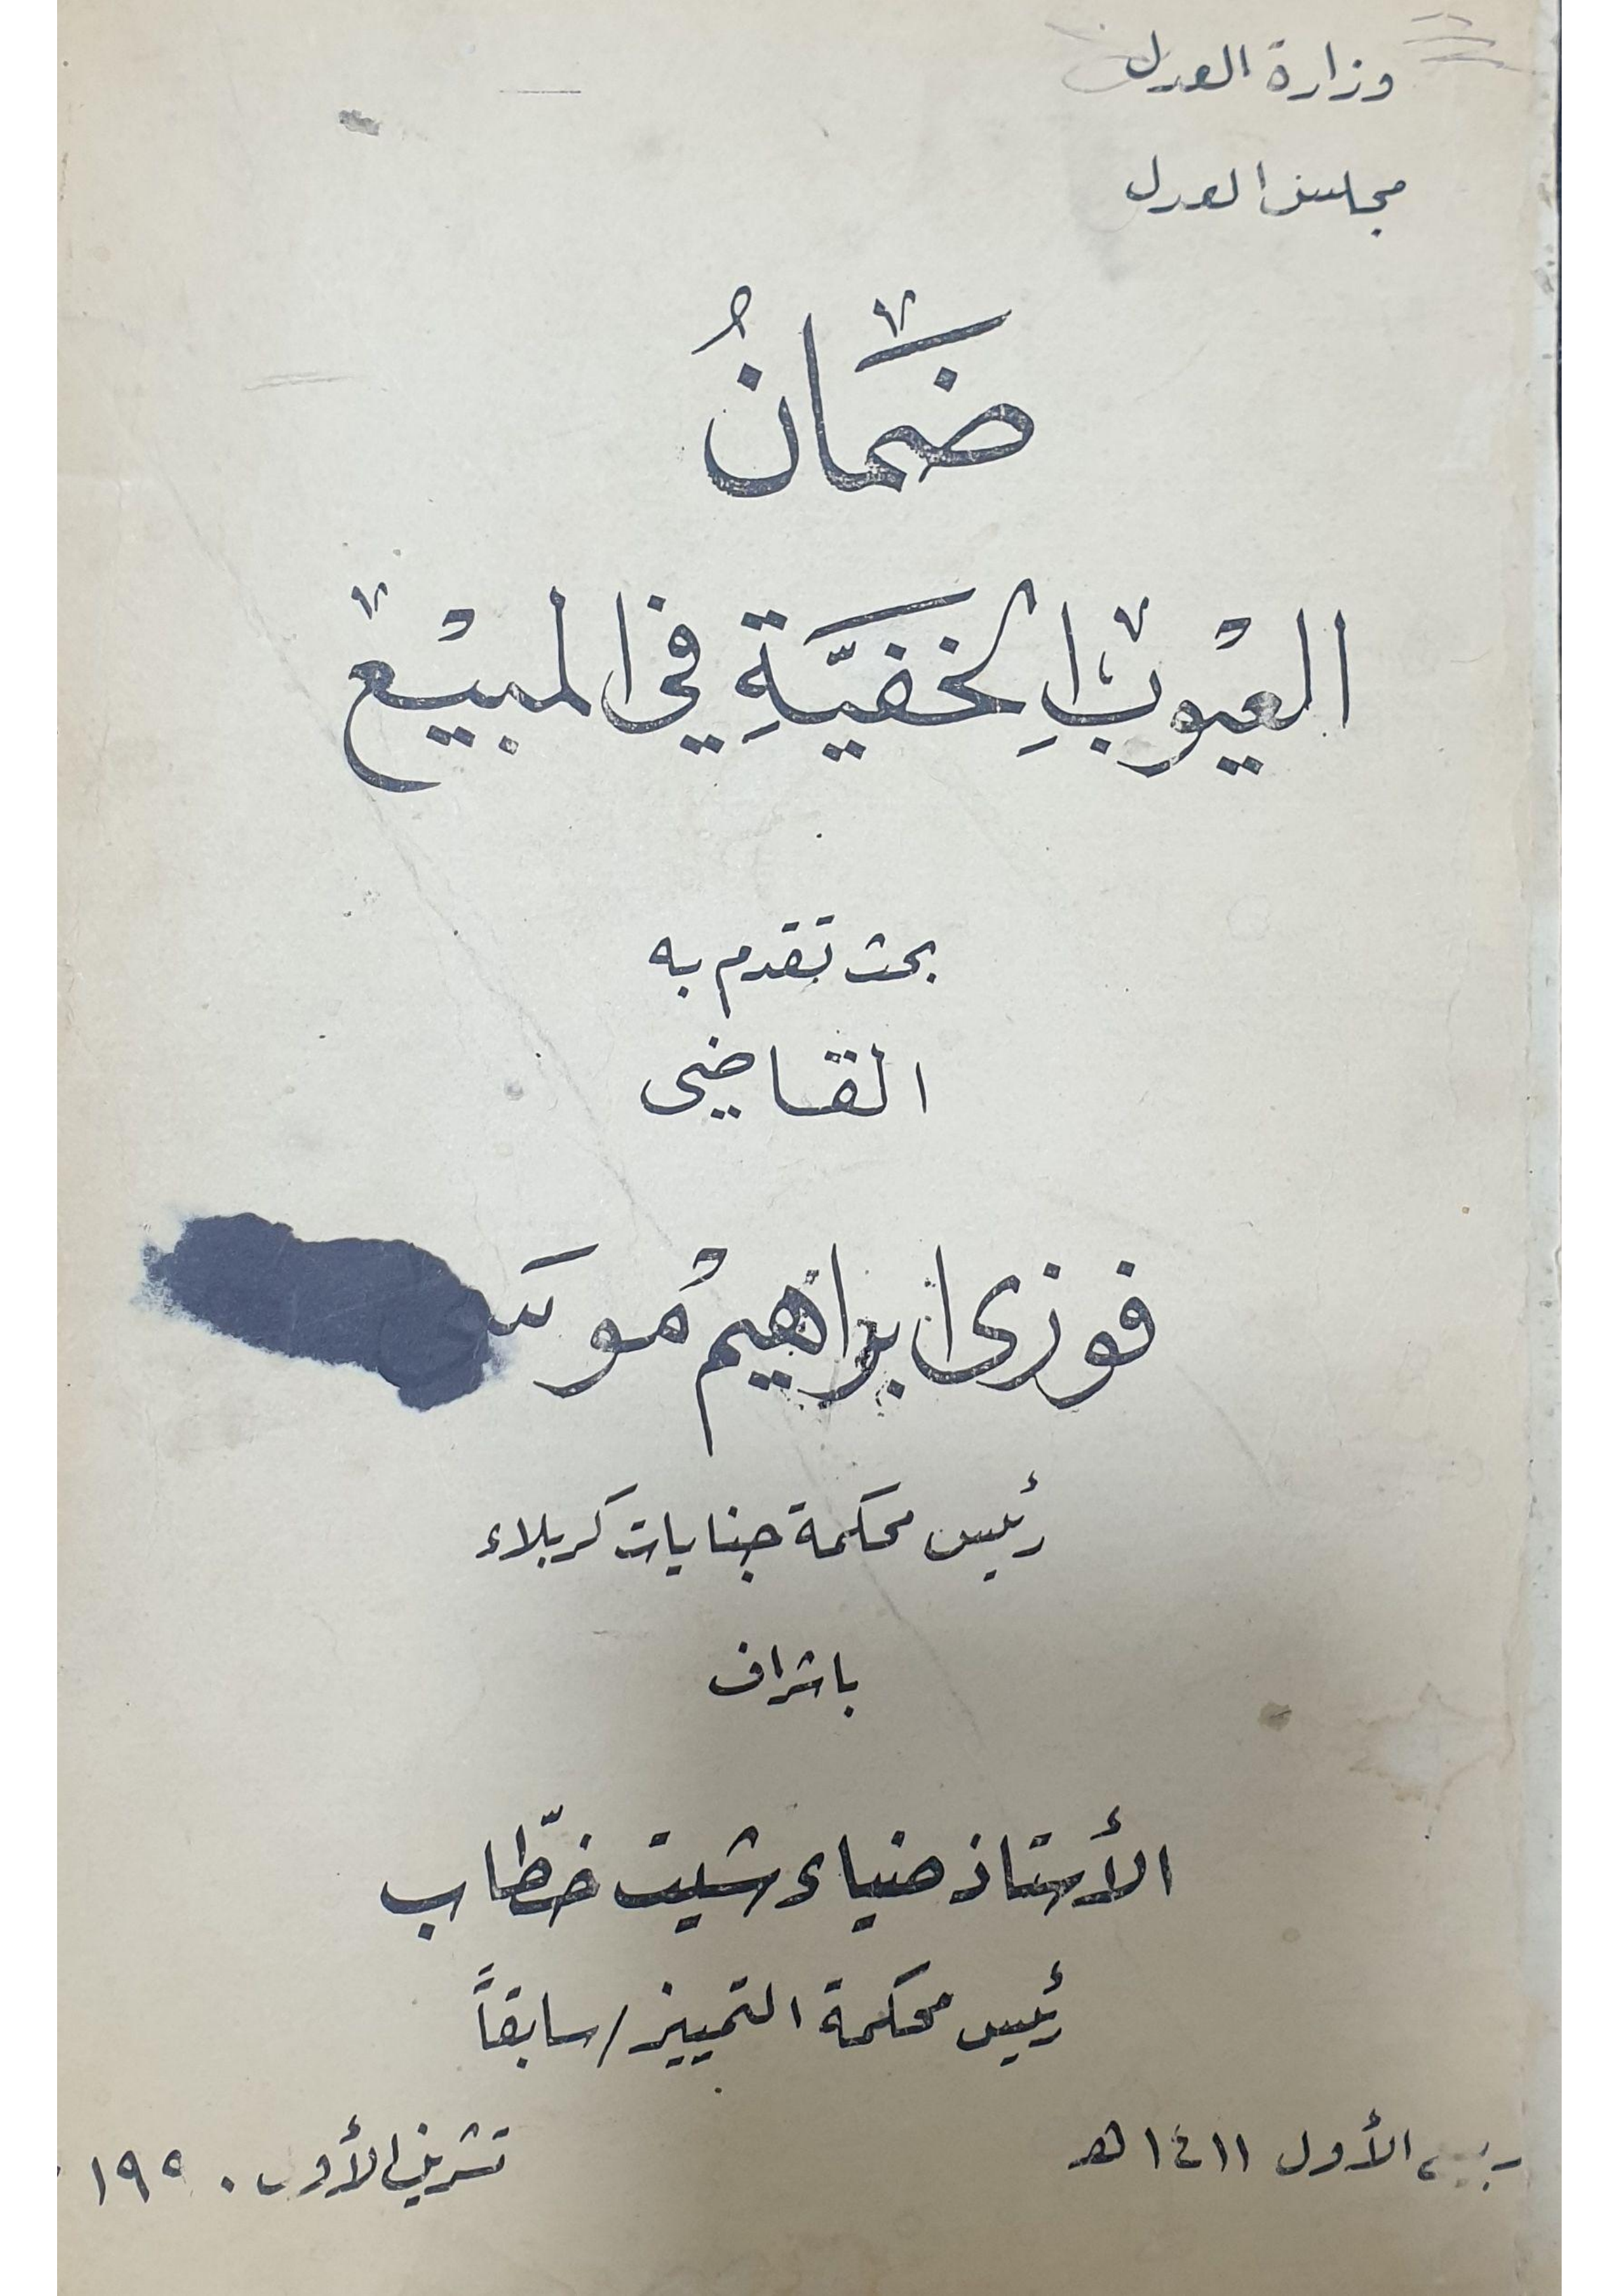 وزارة العدل
مجلس العدل
ضَمَانُ
العيْوبِ الخفيَّةِ في المبيْع
بحث تقدم به
القاضي
فوزى ابراهيم
رئيس محكمة جنايات كربلاء
باشراف
الأستاذ ضياء شيت خطّاب
رئيس محكمة التمييز / سابقاً
ربيع الأول ١٤١١ هـ
تشرين الأول